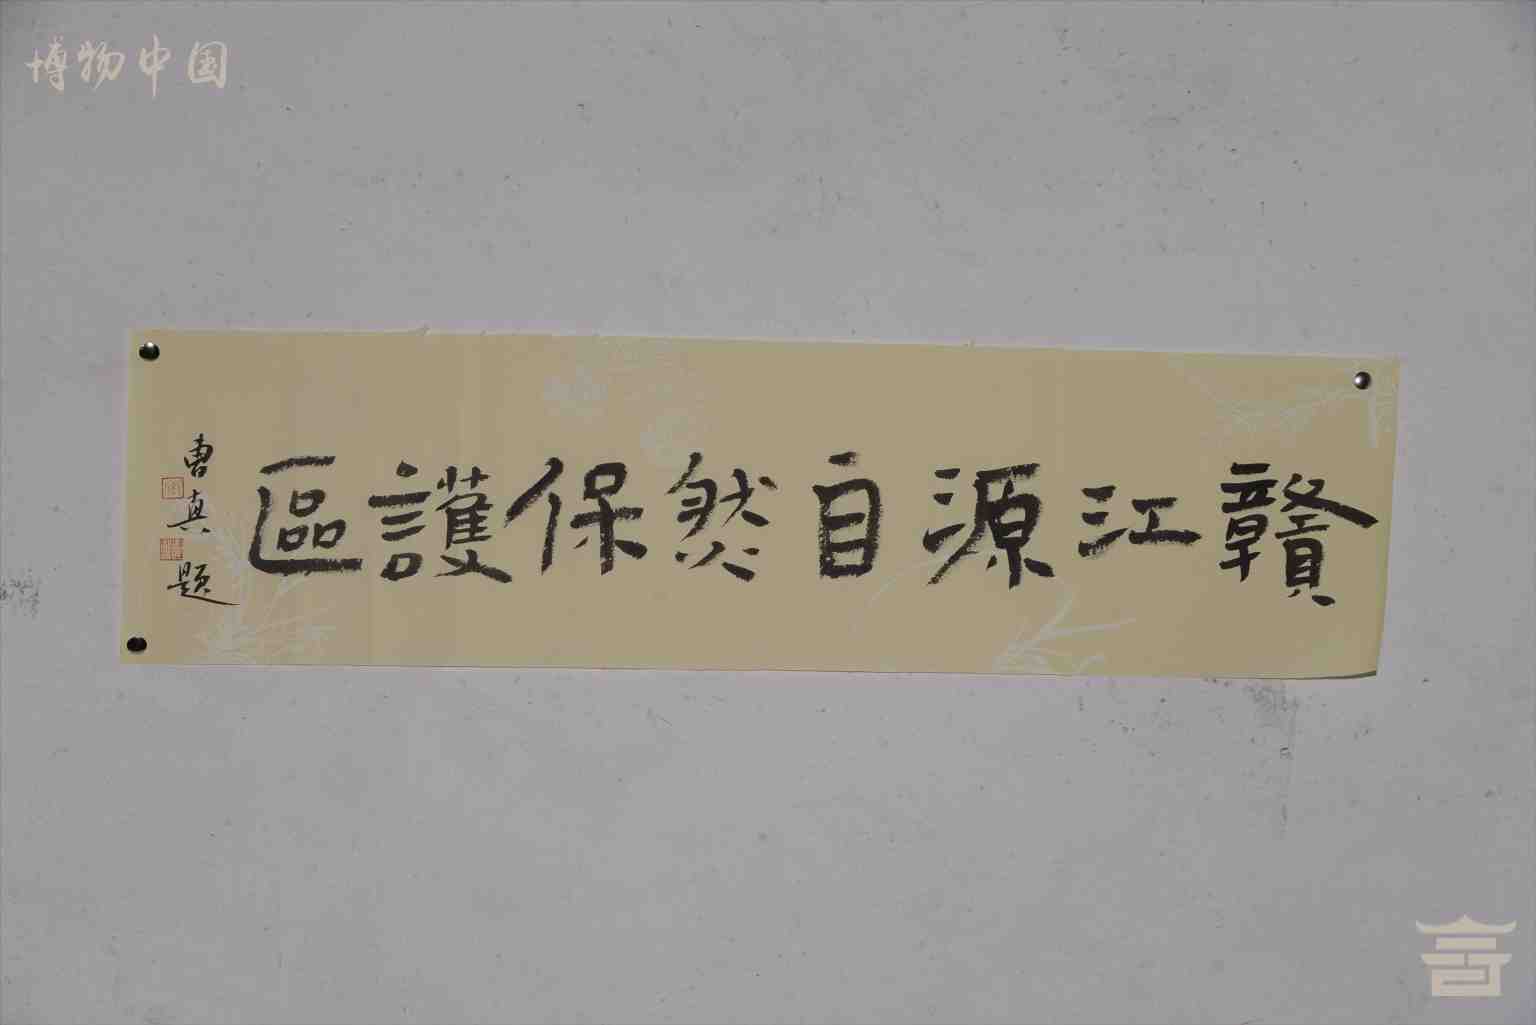 博物中国
贛江源自然保護區
曹真題